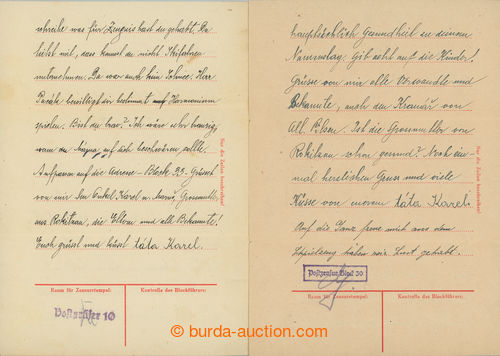 schreibe was für Zeugnis hast du gehabt. Da
mitnehmen. Da war auch kein Schnee. Herr
spielen. Bist du brav? Ich wäre sehr traurig,
wenn du auf dich beschweren sollte.
Aufpassen auf die Adresse - Block
von mir den Onkel Karel u. Grossmutter
aus Rokitzan, die Eltern und alle Bekannte!
Euch grüsst und küsst táta Karel.
Nur die Zeilen beschreiben!
Raum für Zensurstempel:
Kontrolle des Blockführers:
Postprüfer 10
hauptsächlich Gesundheit zu deinem
Namenstag. Gib acht auf die Kinder!
Grüsse von mir alle Verwandte und
Bekannte, auch den von
Ist die Grossmutter von
Rokitzan schon gesund? Noch ein-
mal herzlichen Gruss und viele
Küsse von eurem táta Karel.
Auf die freue mich aus dem
haben wir Lust gehabt.
Nur die Zeilen beschreiben!
Postzensur Block 30
Raum für Zensurstempel:
Kontrolle des Blockführers:
burda-auction.com